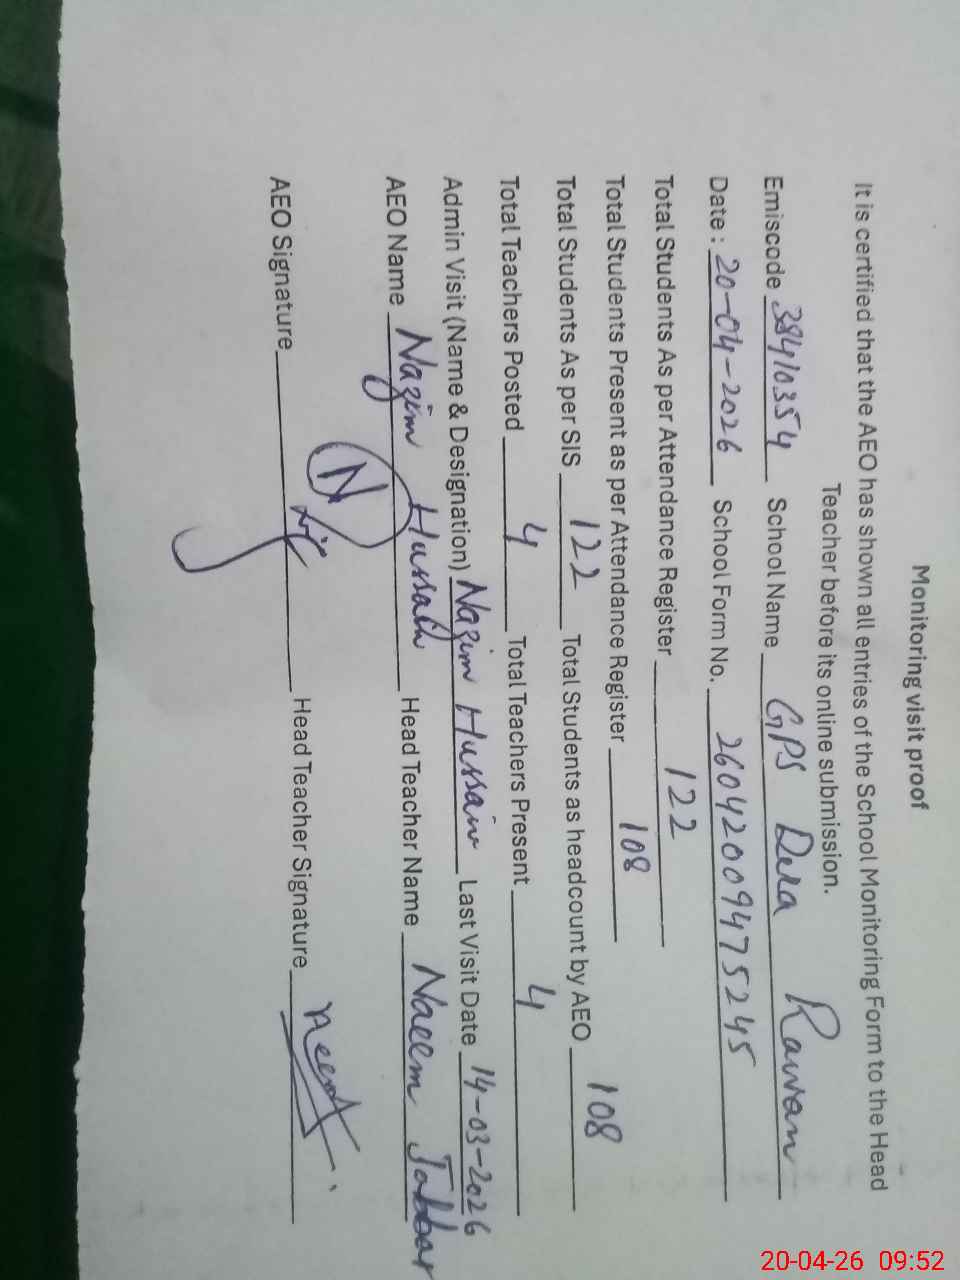 Monitoring visit proof
It is certified that the AEO has shown all entries of the School Monitoring Form to the Head
Teacher before its online submission.
Emiscode 38410354 School Name GPS Dera Rawan
Date: 20-04-2026 School Form No. 26042009475245
Total Students As per Attendance Register 122
Total Students Present as per Attendance Register 108
Total Students As per SIS 122 Total Students as headcount by AEO 108
Total Teachers Posted 4 Total Teachers Present 4
Admin Visit (Name & Designation) Nazim Hussain Last Visit Date 14-03-2026
AEO Name Nazim Hussain Head Teacher Name Naeem Jabbar
AEO Signature Head Teacher Signature Naeem
20-04-26 09:52